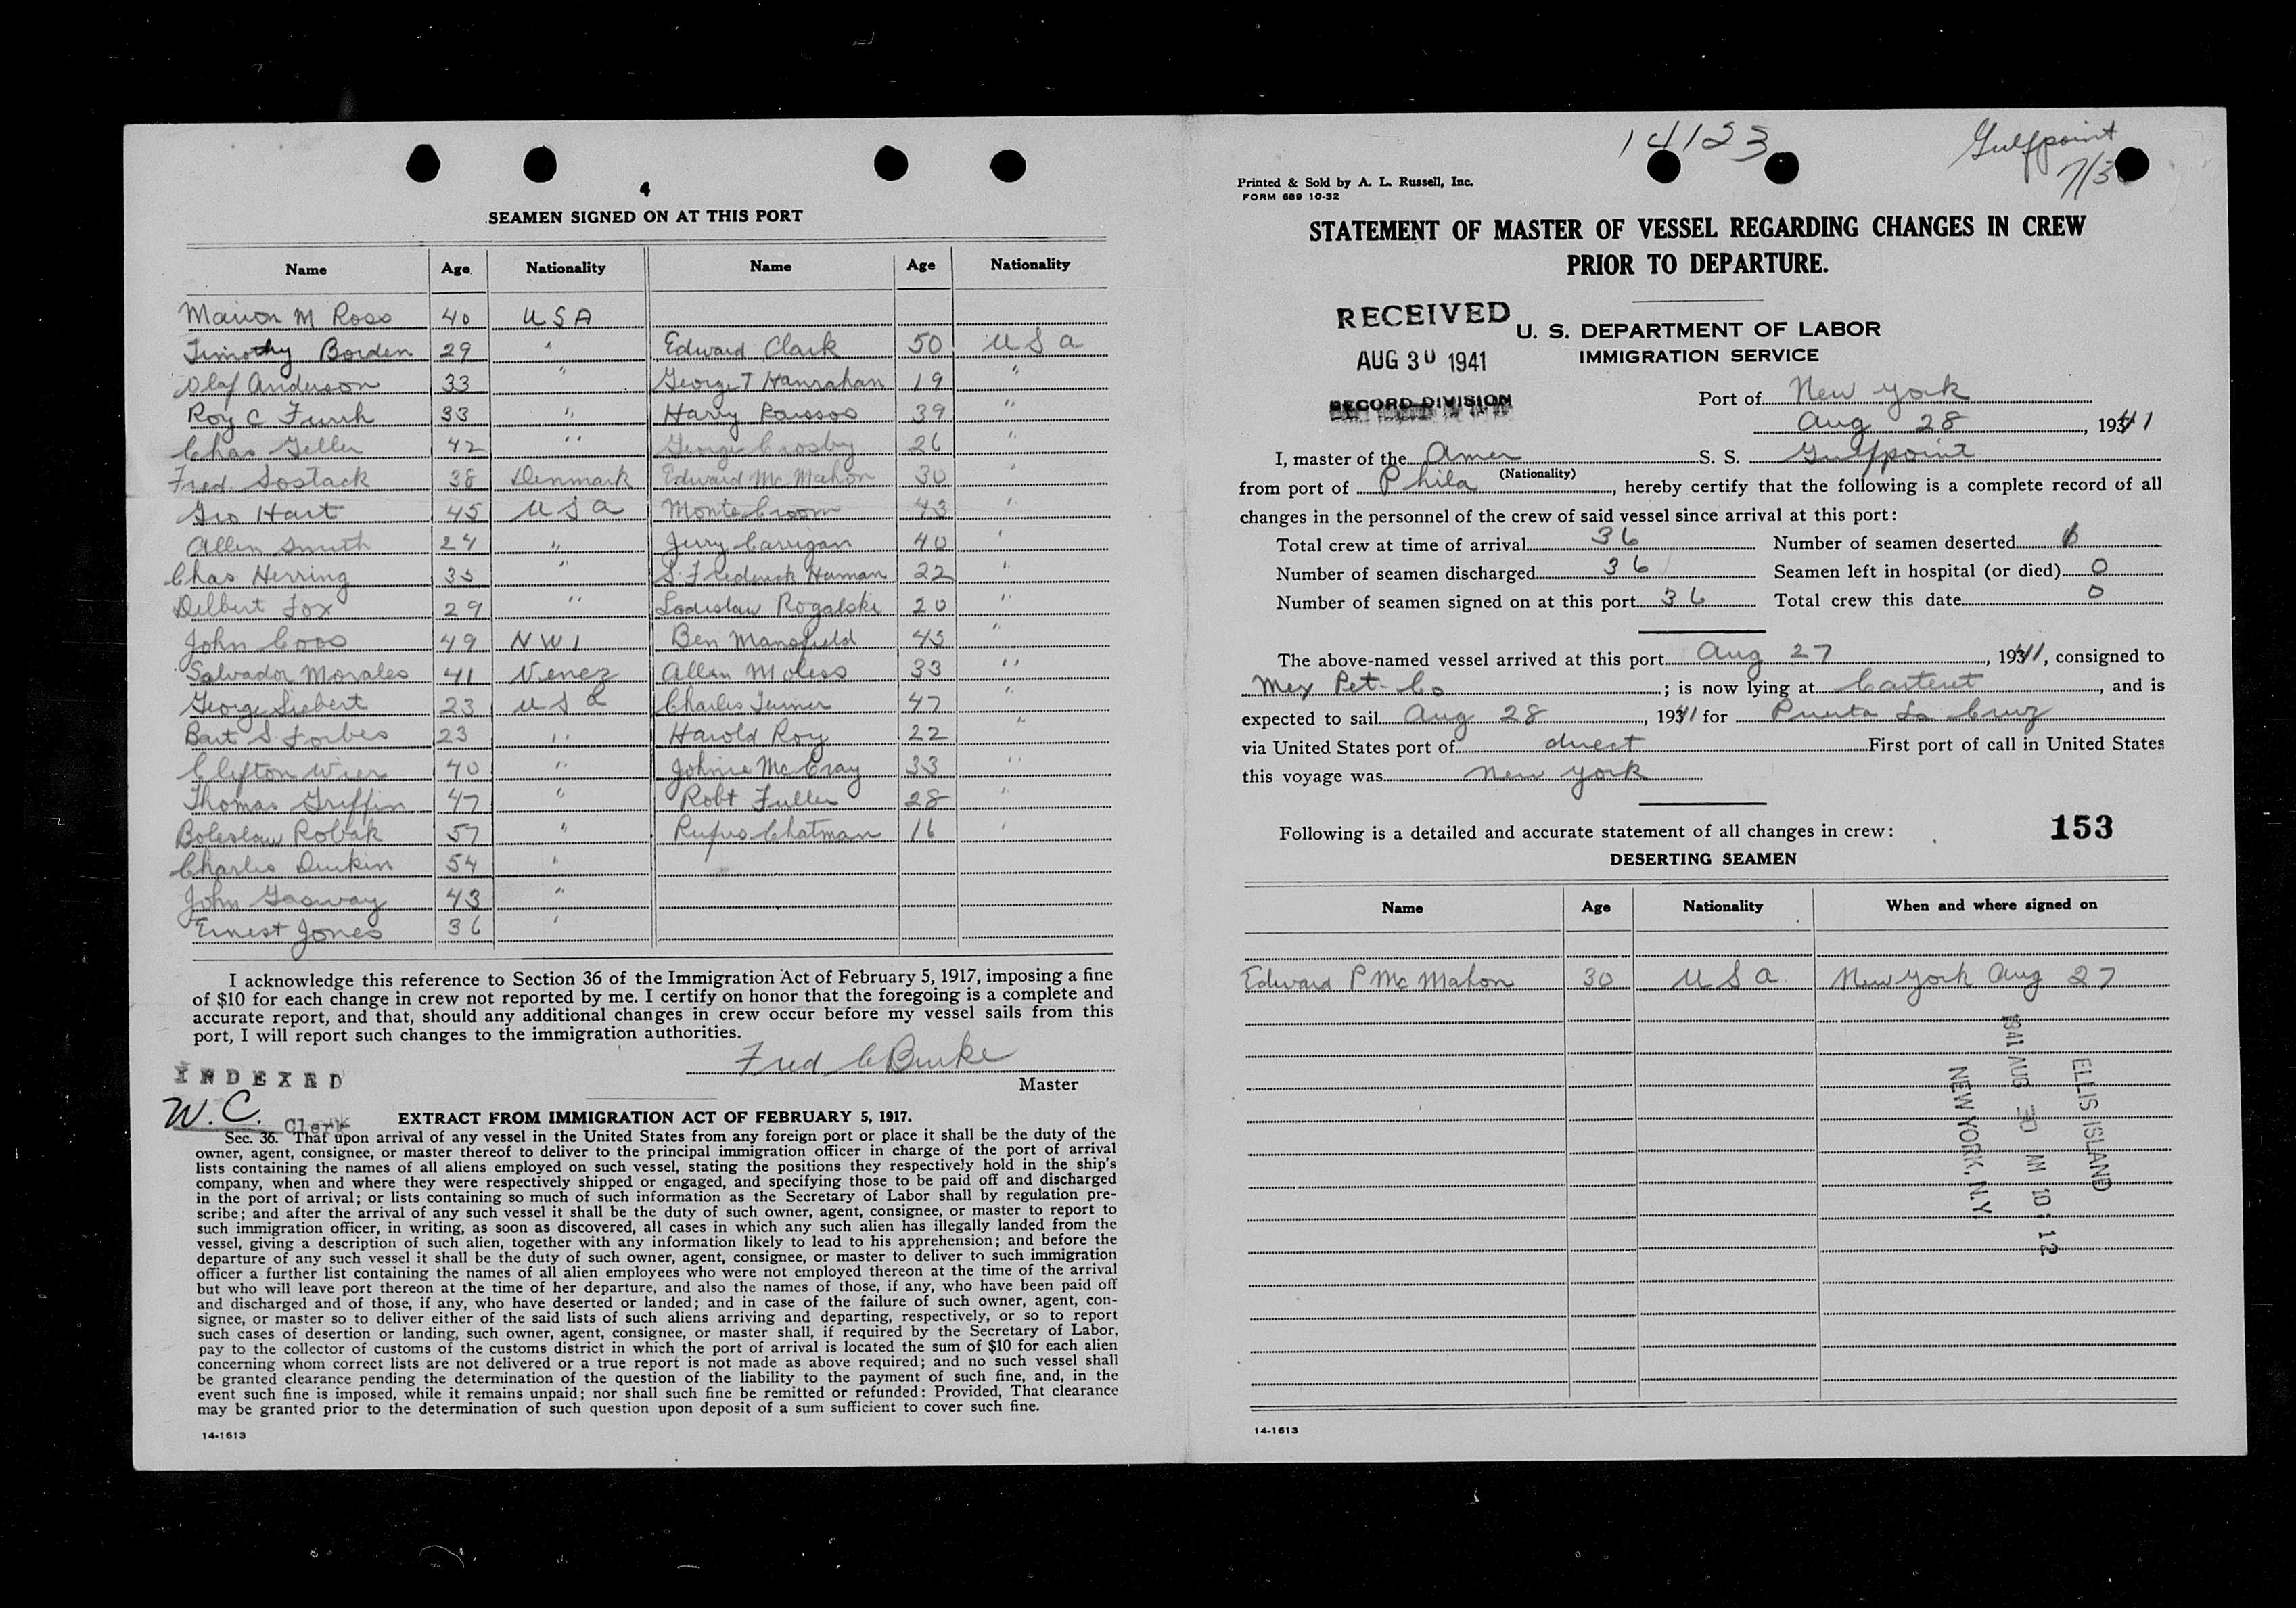 4
SEAMEN SIGNED ON AT THIS PORT
Name Age Nationality Name Age Nationality
Marion M Ross 40 USA
Timothy Borden 29 " Edward Clark 50 USA
Olaf Anderson 33 " George T Hanrahan 19 "
Roy C Funk 33 " Harry Roussos 39 "
Chas Geller 42 " George Crosby 26 "
Fred Sostack 38 Denmark Edward McMahon 30 "
Geo Hart 45 USA Monte Croom 43 "
Allen Smith 24 " Jerry Carrigan 40 "
Chas Herring 35 " S. Frederick Human 22 "
Delbert Fox 29 " Ladislaw Rogalski 20 "
John Coos 49 NWI Ben Mansfield 45 "
Salvador Morales 41 Venez Allan Moless 33 "
George Siebert 23 USA Charles Turner 47 "
Bart S. Forbes 23 " Harold Roy 22 "
Clifton Wier 40 " Johnie McCray 33 "
Thomas Griffin 47 " Robt Fuller 28 "
Boleslaw Robak 57 " Rufus Chatman 16 "
Charles Durkin 54 "
John Gasway 43 "
Ernest Jones 36 "
I acknowledge this reference to Section 36 of the Immigration Act of February 5, 1917, imposing a fine
of $10 for each change in crew not reported by me. I certify on honor that the foregoing is a complete and
accurate report, and that, should any additional changes in crew occur before my vessel sails from this
port, I will report such changes to the immigration authorities.
Fred C Burke
Master
INDEXED
W. C. Clerk
EXTRACT FROM IMMIGRATION ACT OF FEBRUARY 5, 1917.
Sec. 36. That upon arrival of any vessel in the United States from any foreign port or place it shall be the duty of the
owner, agent, consignee, or master thereof to deliver to the principal immigration officer in charge of the port of arrival
lists containing the names of all aliens employed on such vessel, stating the positions they respectively hold in the ship's
company, when and where they were respectively shipped or engaged, and specifying those to be paid off and discharged
in the port of arrival; or lists containing so much of such information as the Secretary of Labor shall by regulation pre-
scribe; and after the arrival of any such vessel it shall be the duty of such owner, agent, consignee, or master to report to
such immigration officer, in writing, as soon as discovered, all cases in which any such alien has illegally landed from the
vessel, giving a description of such alien, together with any information likely to lead to his apprehension; and before the
departure of any such vessel it shall be the duty of such owner, agent, consignee, or master to deliver to such immigration
officer a further list containing the names of all alien employees who were not employed thereon at the time of the arrival
but who will leave port thereon at the time of her departure, and also the names of those, if any, who have been paid off
and discharged and of those, if any, who have deserted or landed; and in case of the failure of such owner, agent, con-
signee, or master so to deliver either of the said lists of such aliens arriving and departing, respectively, or so to report
such cases of desertion or landing, such owner, agent, consignee, or master shall, if required by the Secretary of Labor,
pay to the collector of customs of the customs district in which the port of arrival is located the sum of $10 for each alien
concerning whom correct lists are not delivered or a true report is not made as above required; and no such vessel shall
be granted clearance pending the determination of the question of the liability to the payment of such fine, and, in the
event such fine is imposed, while it remains unpaid; nor shall such fine be remitted or refunded: Provided, That clearance
may be granted prior to the determination of such question upon deposit of a sum sufficient to cover such fine.
14-1613
14123
Gulfpoint
7/3
Printed & Sold by A. L. Russell, Inc.
FORM 689 10-32
STATEMENT OF MASTER OF VESSEL REGARDING CHANGES IN CREW
PRIOR TO DEPARTURE.
RECEIVED
AUG 30 1941
RECORD DIVISION
U. S. DEPARTMENT OF LABOR
IMMIGRATION SERVICE
Port of New York
Aug 28, 1941
I, master of the Amer S. S. Gulfpoint
(Nationality)
from port of Phila, hereby certify that the following is a complete record of all
changes in the personnel of the crew of said vessel since arrival at this port:
Total crew at time of arrival 36 Number of seamen deserted 0
Number of seamen discharged 36 Seamen left in hospital (or died) 0
Number of seamen signed on at this port 36 Total crew this date 0
The above-named vessel arrived at this port Aug 27, 1941, consigned to
Mex Pet. Co; is now lying at Carteret, and is
expected to sail Aug 28, 1941 for Puerta La Cruz
via United States port of direct First port of call in United States
this voyage was New York
Following is a detailed and accurate statement of all changes in crew: 153
DESERTING SEAMEN
Name Age Nationality When and where signed on
Edward P McMahon 30 USA New York Aug 27
ELLIS ISLAND
1941 AUG 30 AM 10:12
NEW YORK, N.Y
14-1613